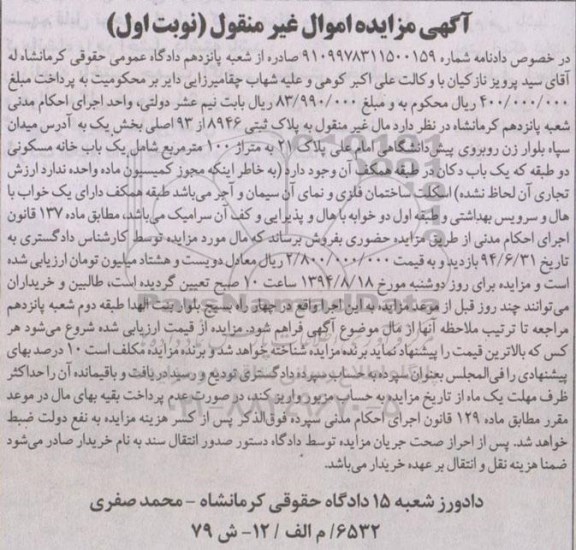 آگهی مزایده اموال غیر منقول (نوبت اول)
در خصوص دادنامه شماره ۹۱۰۹۹۷۸۳۱۱۵۰۰۱۵۹ صادره از شعبه پانزدهم دادگاه عمومی حقوقی کرمانشاه له
آقای سید پرویز نازکیان با وکالت علی اکبر کوهی و علیه شهاب چقامیرزایی دایر بر محکومیت به پرداخت مبلغ
۴۰۰/۰۰۰/۰۰۰ ریال محکوم به و مبلغ ۸۳/۹۹۰/۰۰۰ ریال بابت نیم عشر دولتی، واحد اجرای احکام مدنی
شعبه پانزدهم کرمانشاه در نظر دارد مال غیر منقول به پلاک ثبتی ۸۹۴۶ از ۹۳ اصلی بخش یک به آدرس میدان
سپاه بلوار زن روبروی پیش‌دانشگاهی امام علی پلاک ۲۱ به متراژ ۱۰۰ مترمربع شامل یک باب خانه مسکونی
دو طبقه که یک باب دکان در طبقه همکف آن وجود دارد (به خاطر اینکه مجوز کمیسیون ماده واحده ندارد ارزش
تجاری آن لحاظ نشده) اسکلت ساختمان فلزی و نمای آن سیمان و آجر می‌باشد طبقه همکف دارای یک خواب با
هال و سرویس بهداشتی و طبقه اول دو خوابه با هال و پذیرایی و کف آن سرامیک می‌باشد، مطابق ماده ۱۳۷ قانون
اجرای احکام مدنی از طریق مزایده حضوری بفروش برساند که مال مورد مزایده توسط کارشناس دادگستری به
تاریخ ۹۴/۶/۳۱ بازدید و به قیمت ۲/۸۰۰/۰۰۰/۰۰۰ ریال معادل دویست و هشتاد میلیون تومان ارزیابی شده
است و مزایده برای روز دوشنبه مورخ ۱۳۹۴/۸/۱۸ ساعت ۱۰ صبح تعیین گردیده است، طالبین و خریداران
می‌توانند چند روز قبل از موعد مزایده به این اجرا واقع در چهار راه بسیج بلوار بنت الهدا طبقه دوم شعبه پانزدهم
مراجعه تا ترتیب ملاحظه آنها از مال موضوع آگهی فراهم شود. مزایده از قیمت ارزیابی شده شروع می‌شود هر
کس که بالاترین قیمت را پیشنهاد نماید برنده مزایده شناخته خواهد شد و برنده مزایده مکلف است ۱۰ درصد بهای
پیشنهادی را فی‌المجلس بعنوان سپرده به حساب سپرده دادگستری تودیع و رسید دریافت و باقیمانده آن را حداکثر
ظرف مهلت یک ماه از تاریخ مزایده به حساب مزبور واریز کند، در صورت عدم پرداخت بقیه بهای مال در موعد
مقرر مطابق ماده ۱۲۹ قانون اجرای احکام مدنی سپرده فوق‌الذکر پس از کسر هزینه مزایده به نفع دولت ضبط
خواهد شد. پس از احراز صحت جریان مزایده توسط دادگاه دستور صدور انتقال سند به نام خریدار صادر می‌شود
ضمنا هزینه نقل و انتقال بر عهده خریدار می‌باشد.
دادورز شعبه ۱۵ دادگاه حقوقی کرمانشاه - محمد صفری
۶۵۳۲/ م الف / ۱۲- ش ۷۹
ParsNamadData